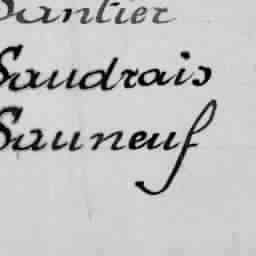 Santier
Saudrais
Sauneuf